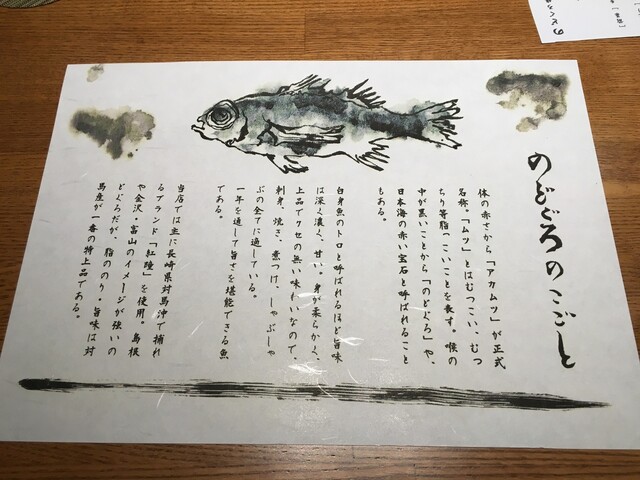 のどぐろのこごと
体の赤さから「アカムツ」が正式
名称。「ムツ」とはむつこい、むつ
ちり等脂っこいことを表す。喉の
中が黒いことから「のどぐろ」や、
日本海の赤い宝石と呼ばれること
もある。
白身魚のトロと呼ばれるほど旨味
は深く濃く、甘い。身が柔らかく、
上品でクセの無い味わいなので、
刺身、焼き、煮つけ、しゃぶしゃ
ぶの全てに適している。
一年を通して旨さを堪能できる魚
である。
当店では主に長崎県対馬沖で捕れ
るブランド「紅瞳」を使用。島根
や金沢・富山のイメージが強いの
どぐろだが、脂ののり・旨味は対
馬産が一番の特上品である。